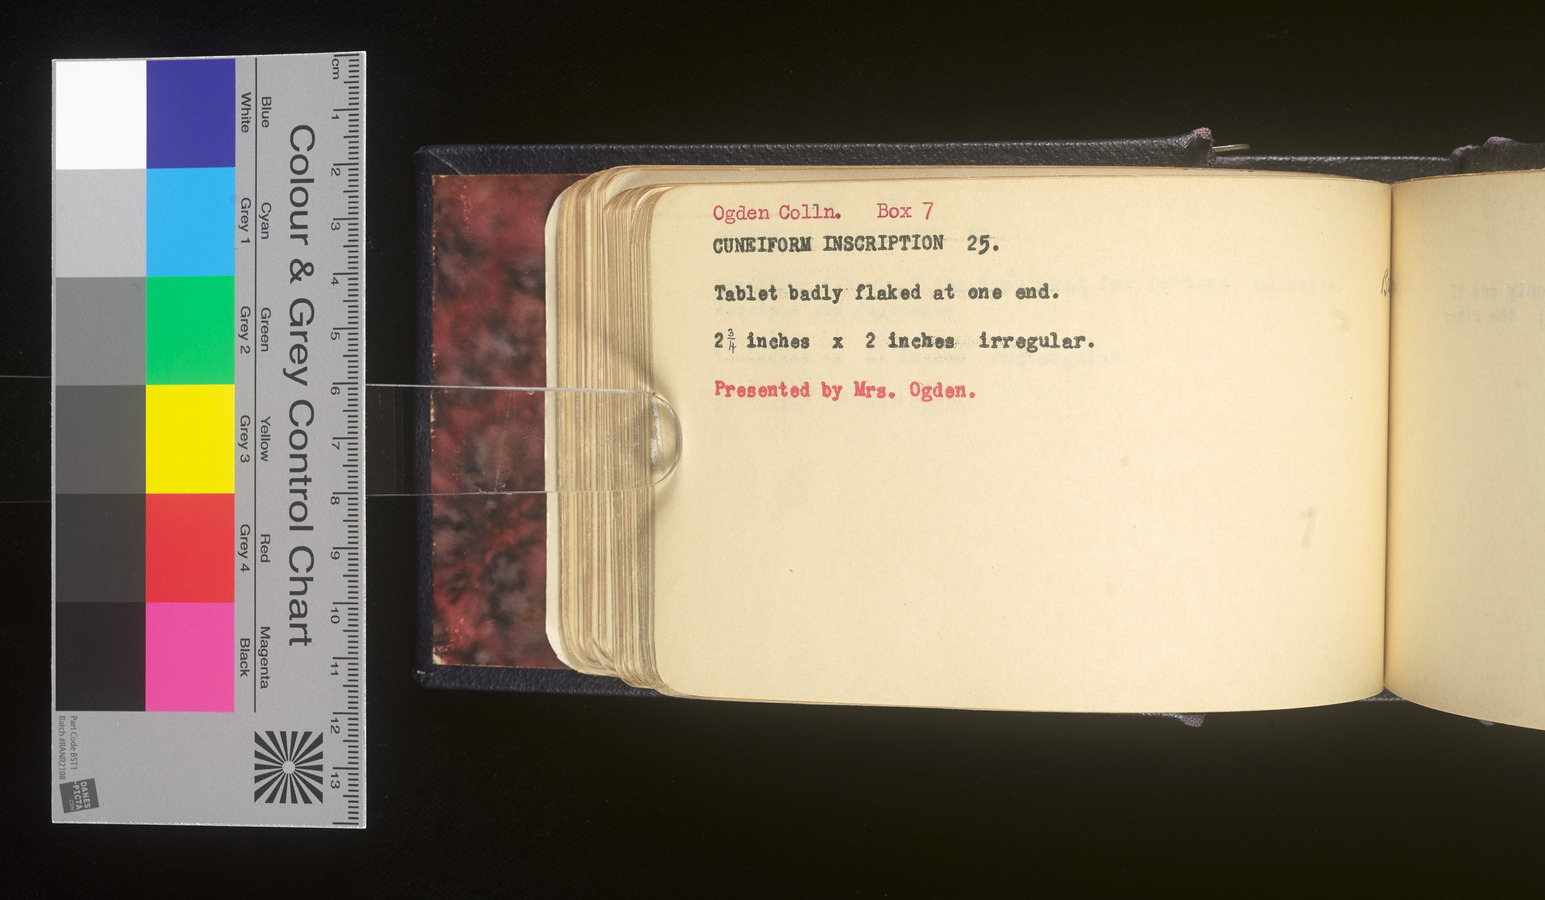 Ogden Colln. Box 7
CUNEIFORM INSCRIPTION 25.
Tablet badly flaked at one end.
2¾ inches x 2 inches irregular.
Presented by Mrs. Ogden.
Colour & Grey Control Chart
Blue Cyan Green Yellow Red Magenta
White Grey 1 Grey 2 Grey 3 Grey 4 Black
cm 1 2 3 4 5 6 7 8 9 10 11 12 13
Part Code BST1
Batch #RANR2108
DANES
-PICTA
.COM